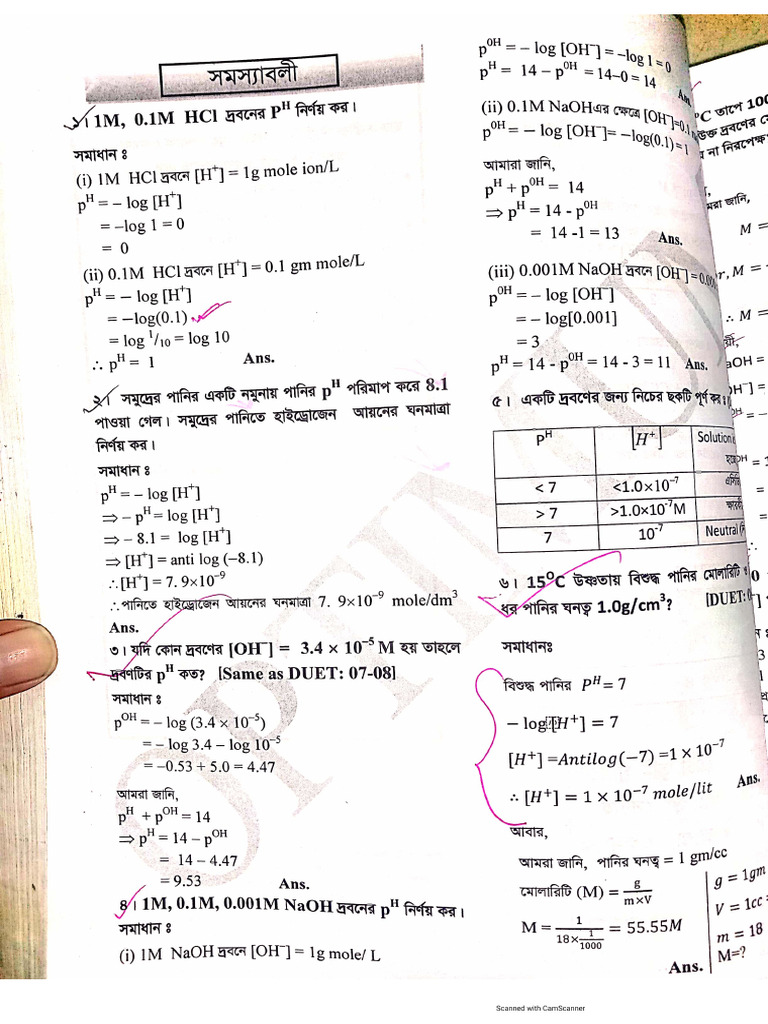 সমস্যাবলী
১। 1M, 0.1M HCl দ্রবনের P^H নির্ণয় কর।
সমাধান ঃ
(i) 1M HCl দ্রবনে [H⁺] = 1g mole ion/L
p^H = – log [H⁺]
= –log 1 = 0
= 0
(ii) 0.1M HCl দ্রবনে [H⁺] = 0.1 gm mole/L
p^H = – log [H⁺]
= –log(0.1)
= log ¹/₁₀ = log 10
∴ p^H = 1 Ans.
২। সমুদ্রের পানির একটি নমুনায় পানির p^H পরিমাপ করে 8.1
পাওয়া গেল। সমুদ্রের পানিতে হাইড্রোজেন আয়নের ঘনমাত্রা
নির্ণয় কর।
সমাধান ঃ
p^H = – log [H⁺]
⇒ – p^H = log [H⁺]
⇒ – 8.1 = log [H⁺]
⇒ [H⁺] = anti log (–8.1)
∴[H⁺] = 7. 9×10⁻⁹
∴পানিতে হাইড্রোজেন আয়নের ঘনমাত্রা 7. 9×10⁻⁹ mole/dm³
Ans.
৩। যদি কোন দ্রবণের [OH⁻] = 3.4 × 10⁻⁵ M হয় তাহলে
দ্রবণটির p^H কত? [Same as DUET: 07-08]
সমাধান ঃ
p^OH = – log (3.4 × 10⁻⁵)
= – log 3.4 – log 10⁻⁵
= –0.53 + 5.0 = 4.47
আমরা জানি,
p^H + p^OH = 14
⇒ p^H = 14 – p^OH
= 14 – 4.47
= 9.53 Ans.
৪। 1M, 0.1M, 0.001M NaOH দ্রবনের p^H নির্ণয় কর।
সমাধান ঃ
(i) 1M NaOH দ্রবনে [OH⁻] = 1g mole/ L
p^0H = – log [OH⁻] = –log 1 = 0
p^H = 14 – p^0H = 14–0 = 14
Ans.
(ii) 0.1M NaOHএর ক্ষেত্রে [OH⁻]=0.1
p^0H = – log [OH⁻]= –log(0.1) = 1
আমারা জানি,
p^H + p^0H = 14
⇒ p^H = 14 - p^0H
= 14 -1 = 13 Ans.
(iii) 0.001M NaOH দ্রবনে [OH⁻] = 0.00
p^0H = – log [OH⁻]
= – log[0.001]
= 3
p^H = 14 - p^0H = 14 - 3 = 11 Ans.
৫। একটি দ্রবণের জন্য নিচের ছকটি পূর্ণ কর ঃ
P^H [H⁺] Solution
< 7 <1.0×10⁻⁷
> 7 >1.0×10⁻⁷M
7 10⁻⁷ Neutral
৬। 15⁰C উষ্ণতায় বিশুদ্ধ পানির মোলারিটি
ধর পানির ঘনত্ব 1.0g/cm³? [DUET: 0
সমাধানঃ
বিশুদ্ধ পানির P^H = 7
– log[H⁺] = 7
[H⁺] =Antilog(–7) =1 × 10⁻⁷
∴ [H⁺] = 1 × 10⁻⁷ mole/lit Ans.
আবার,
আমরা জানি, পানির ঘনত্ব = 1 gm/cc
মোলারিটি (M) = g/(m×V)
M = 1/(18×1/1000) = 55.55M
Ans.
g = 1gm
V = 1cc =
m = 18
M=?
Scanned with CamScanner